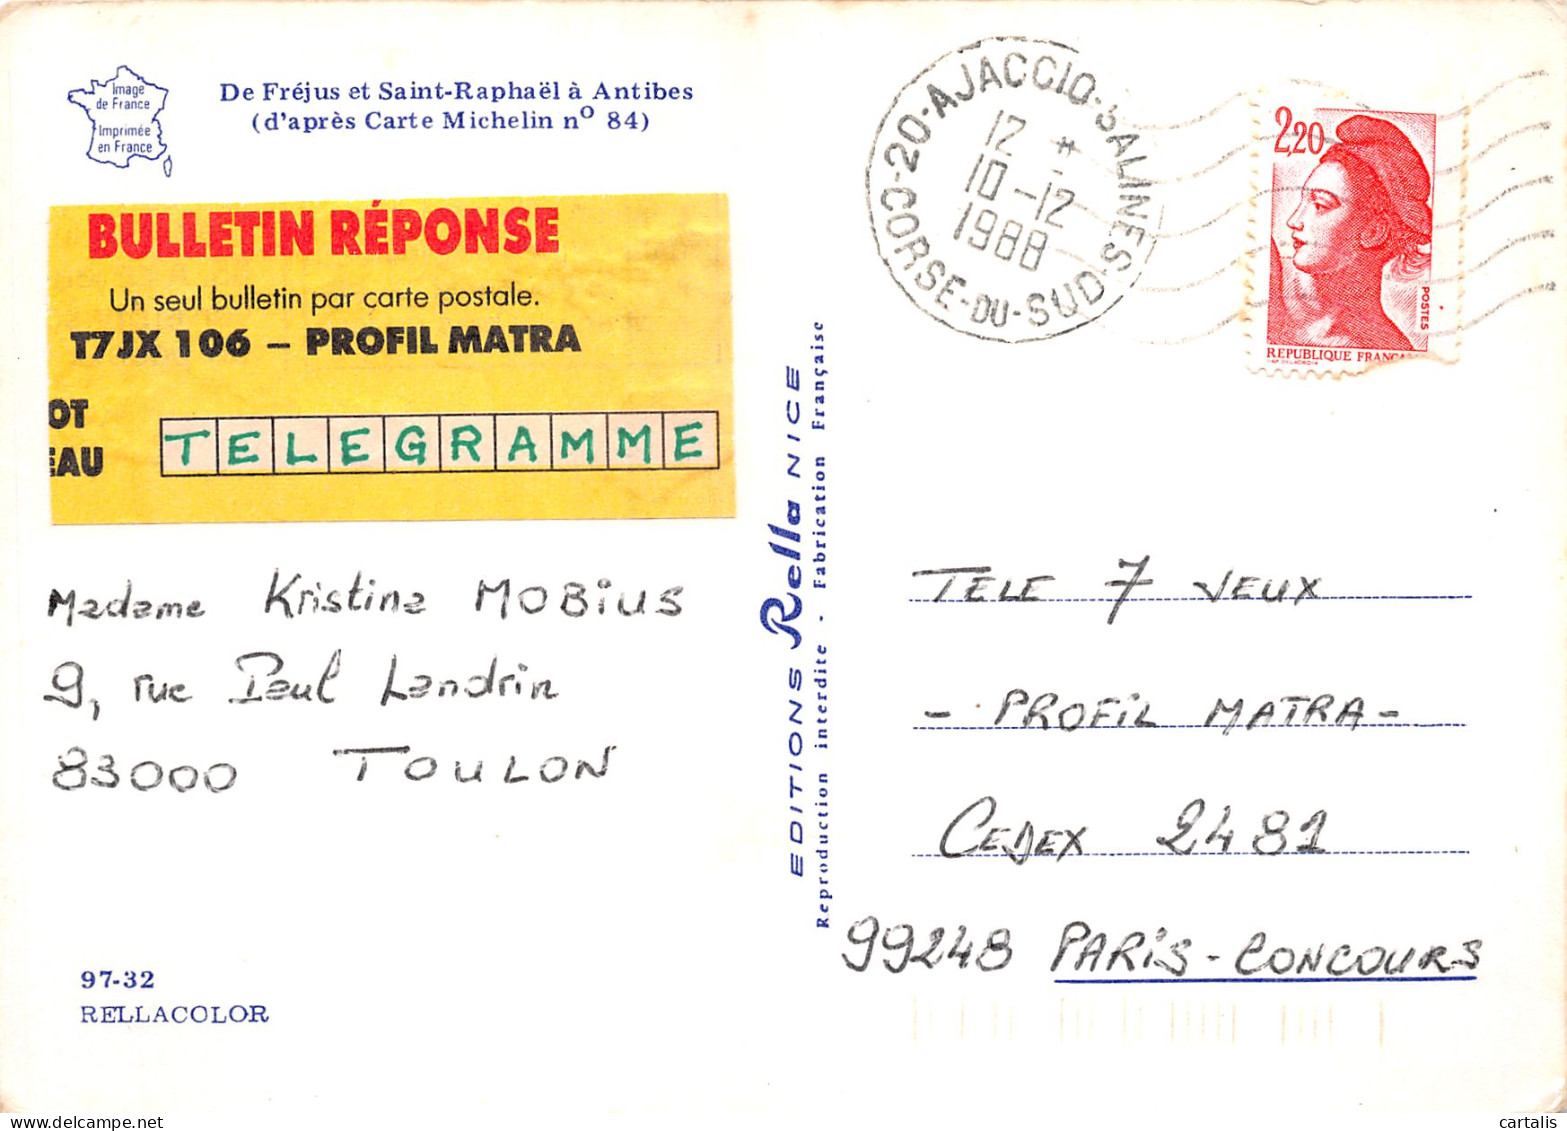 Image
de France
Imprimée
en France
De Fréjus et Saint-Raphaël à Antibes
(d'après Carte Michelin nº 84)
BULLETIN RÉPONSE
Un seul bulletin par carte postale.
T7JX 106 – PROFIL MATRA
OT
EAU
TELEGRAMME
Madame Kristina MOBIUS
9, rue Paul Landrin
83000 TOULON
97-32
RELLACOLOR
EDITIONS Rella NICE
Reproduction interdite - Fabrication Française
20-AJACCIO-SALINES
12 *
10-12
1988
CORSE-DU-SUD
2,20
POSTES
REPUBLIQUE FRANÇA
TELE 7 JEUX
- PROFIL MATRA -
CEDEX 2481
99248 PARIS-CONCOURS
www.cartalis.com
cartalis